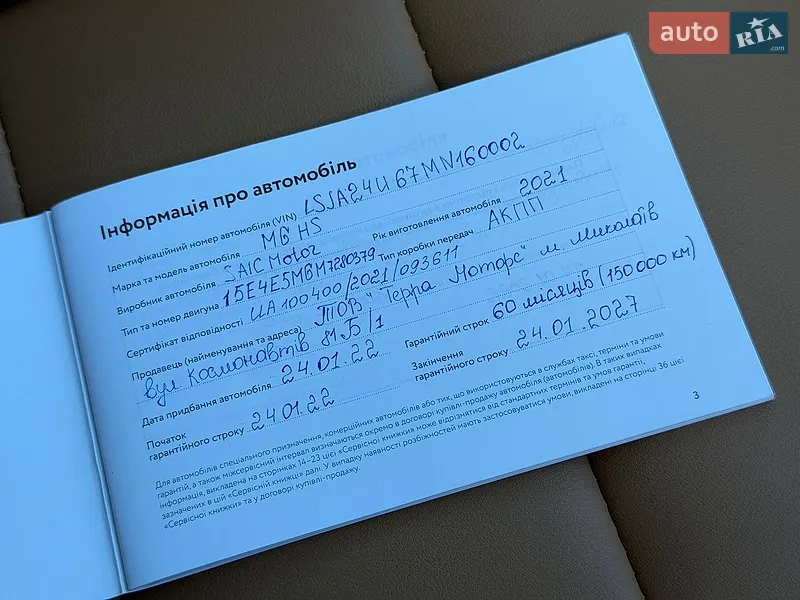 auto RIA .com
Інформація про автомобіль
Ідентифікаційний номер автомобіля (VIN) LSJA24U67MN160002
Марка та модель автомобіля MG HS Рік виготовлення автомобіля 2021
Виробник автомобіля SAIC Motor Тип коробки передач АКПП
Тип та номер двигуна 15E4E5MBM7280379
Сертифікат відповідності UA 100400/2021/093611
Продавець (найменування та адреса) ТОВ "Терра Моторс" м. Миколаїв
вул Космонавтів 81Б/1
Дата придбання автомобіля 24.01.22 Гарантійний строк 60 місяців (150 000 км)
Початок гарантійного строку 24.01.22 Закінчення гарантійного строку 24.01.2027
Для автомобілів спеціального призначення, комерційних автомобілів або тих, що використовуються в службах таксі, терміни та умови
гарантії, а також міжсервісний інтервал визначаються окремо в договорі купівлі-продажу автомобіля (автомобілів). В таких випадках
інформація, викладена на сторінках 14–23 цієї «Сервісної книжки» може відрізнятися від стандартних термінів та умов гарантії,
зазначених в цій «Сервісній книжці» далі. У випадку наявності розбіжностей мають застосовуватися умови, викладені на сторінці 36 цієї
«Сервісної книжки» та у договорі купівлі-продажу.
3